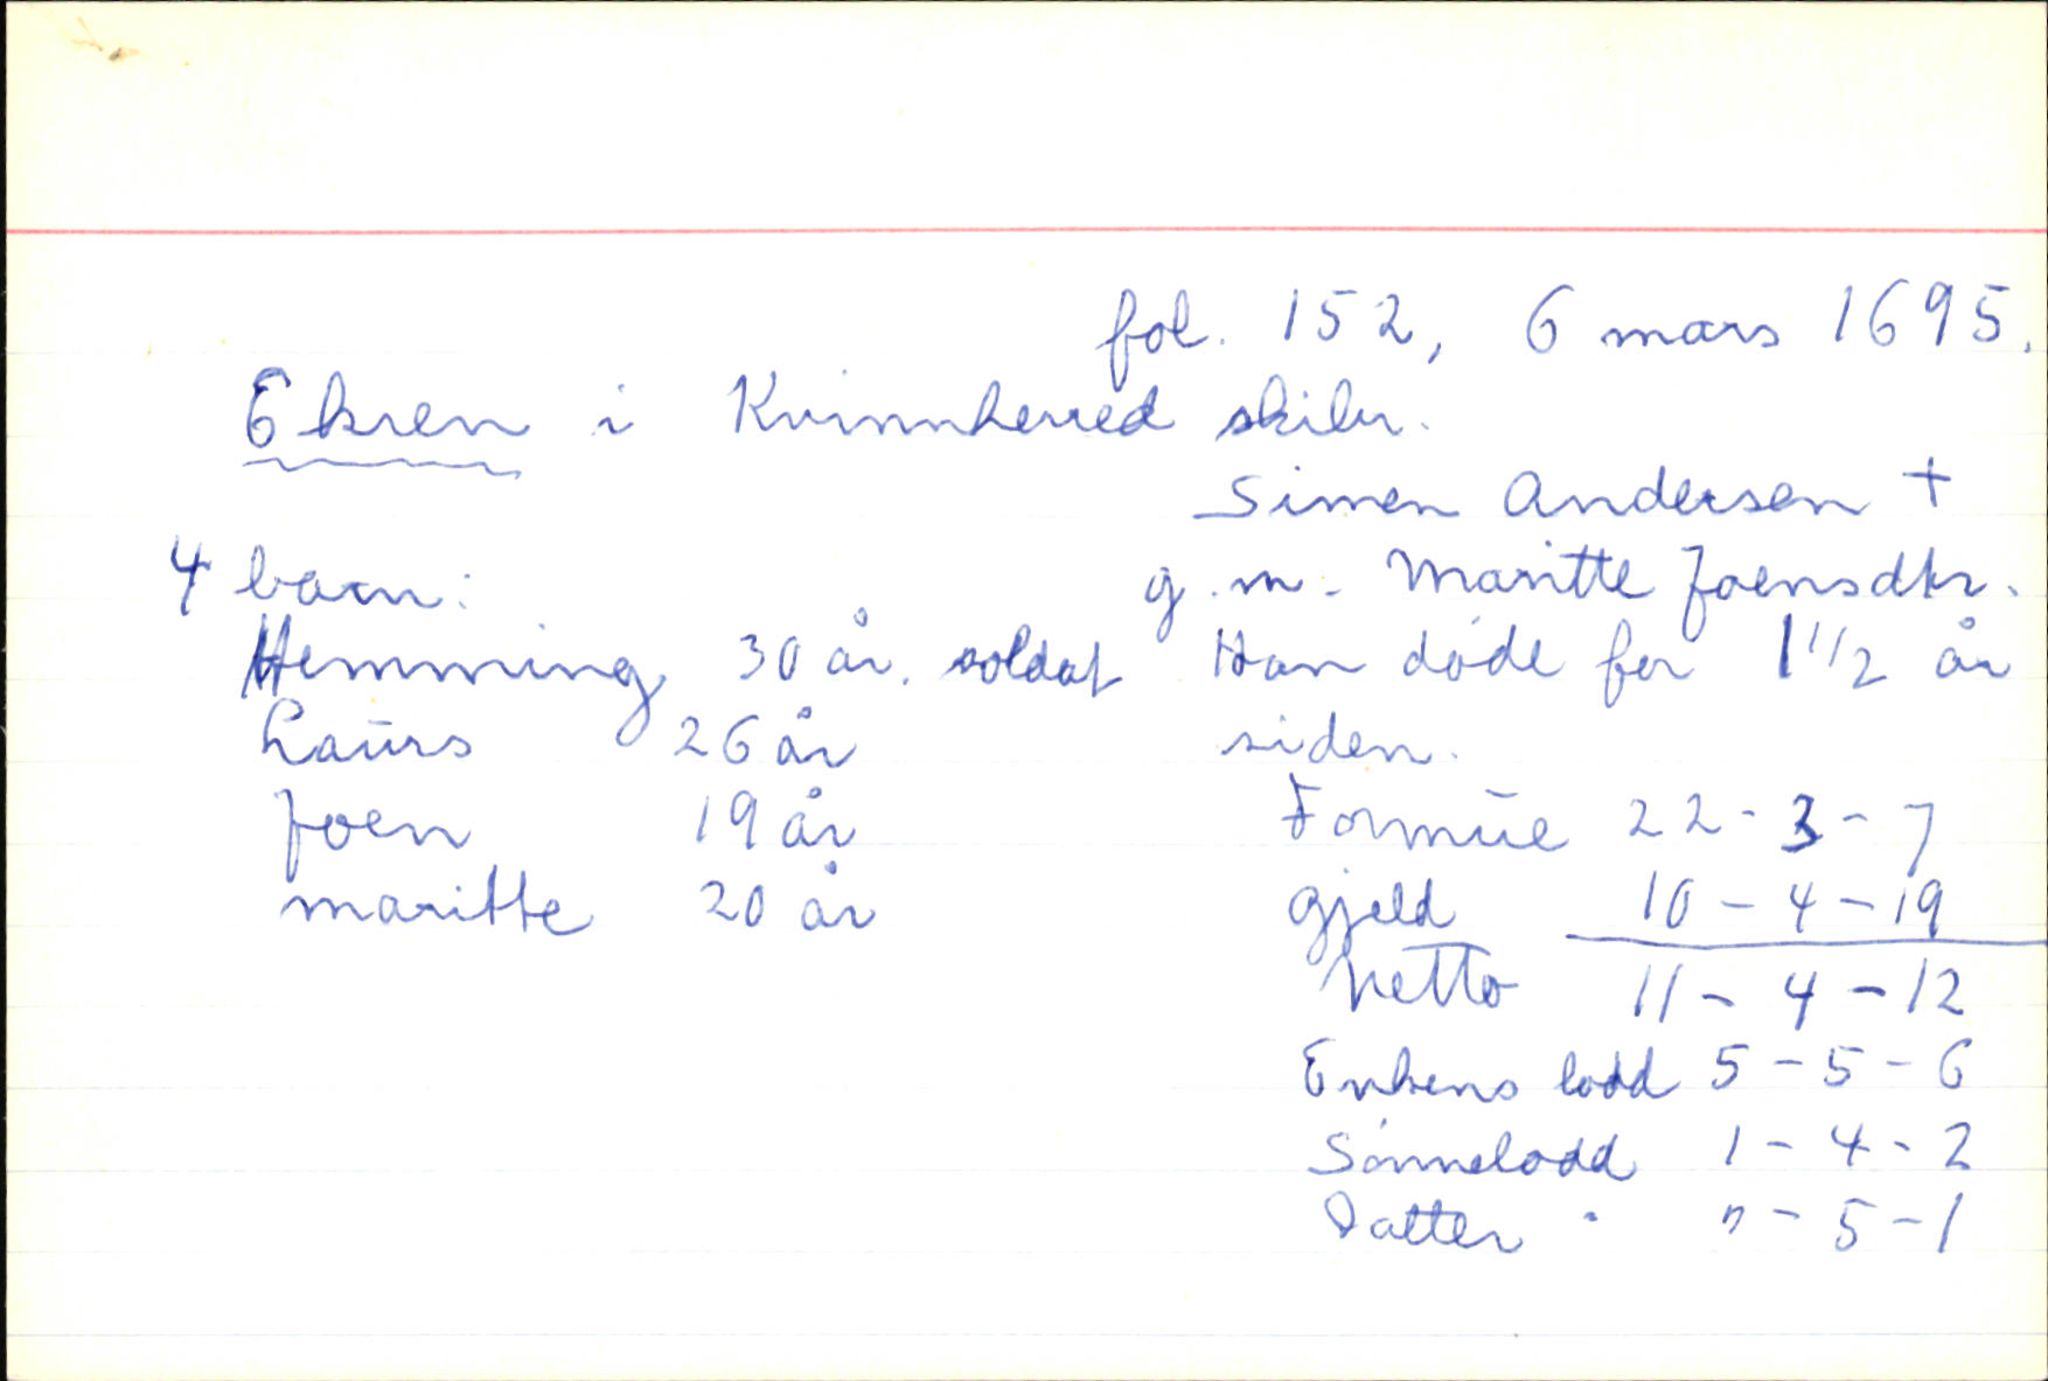 fol. 152, 6 mars 1695.
Ekren i Kvinnherred skibr.
Simen Andersen +
4 barn:
g.m. Maritte Joensdtr.
Hemming 30 år. soldat
Han døde for 1 1/2 år
siden.
Laurs 26 år
Joen 19 år
maritte 20 år
Formue 22-3-7
gjeld 10-4-19
Netto 11-4-12
Enkens lodd 5-5-6
Sønnelodd 1-4-2
Datter " "-5-1